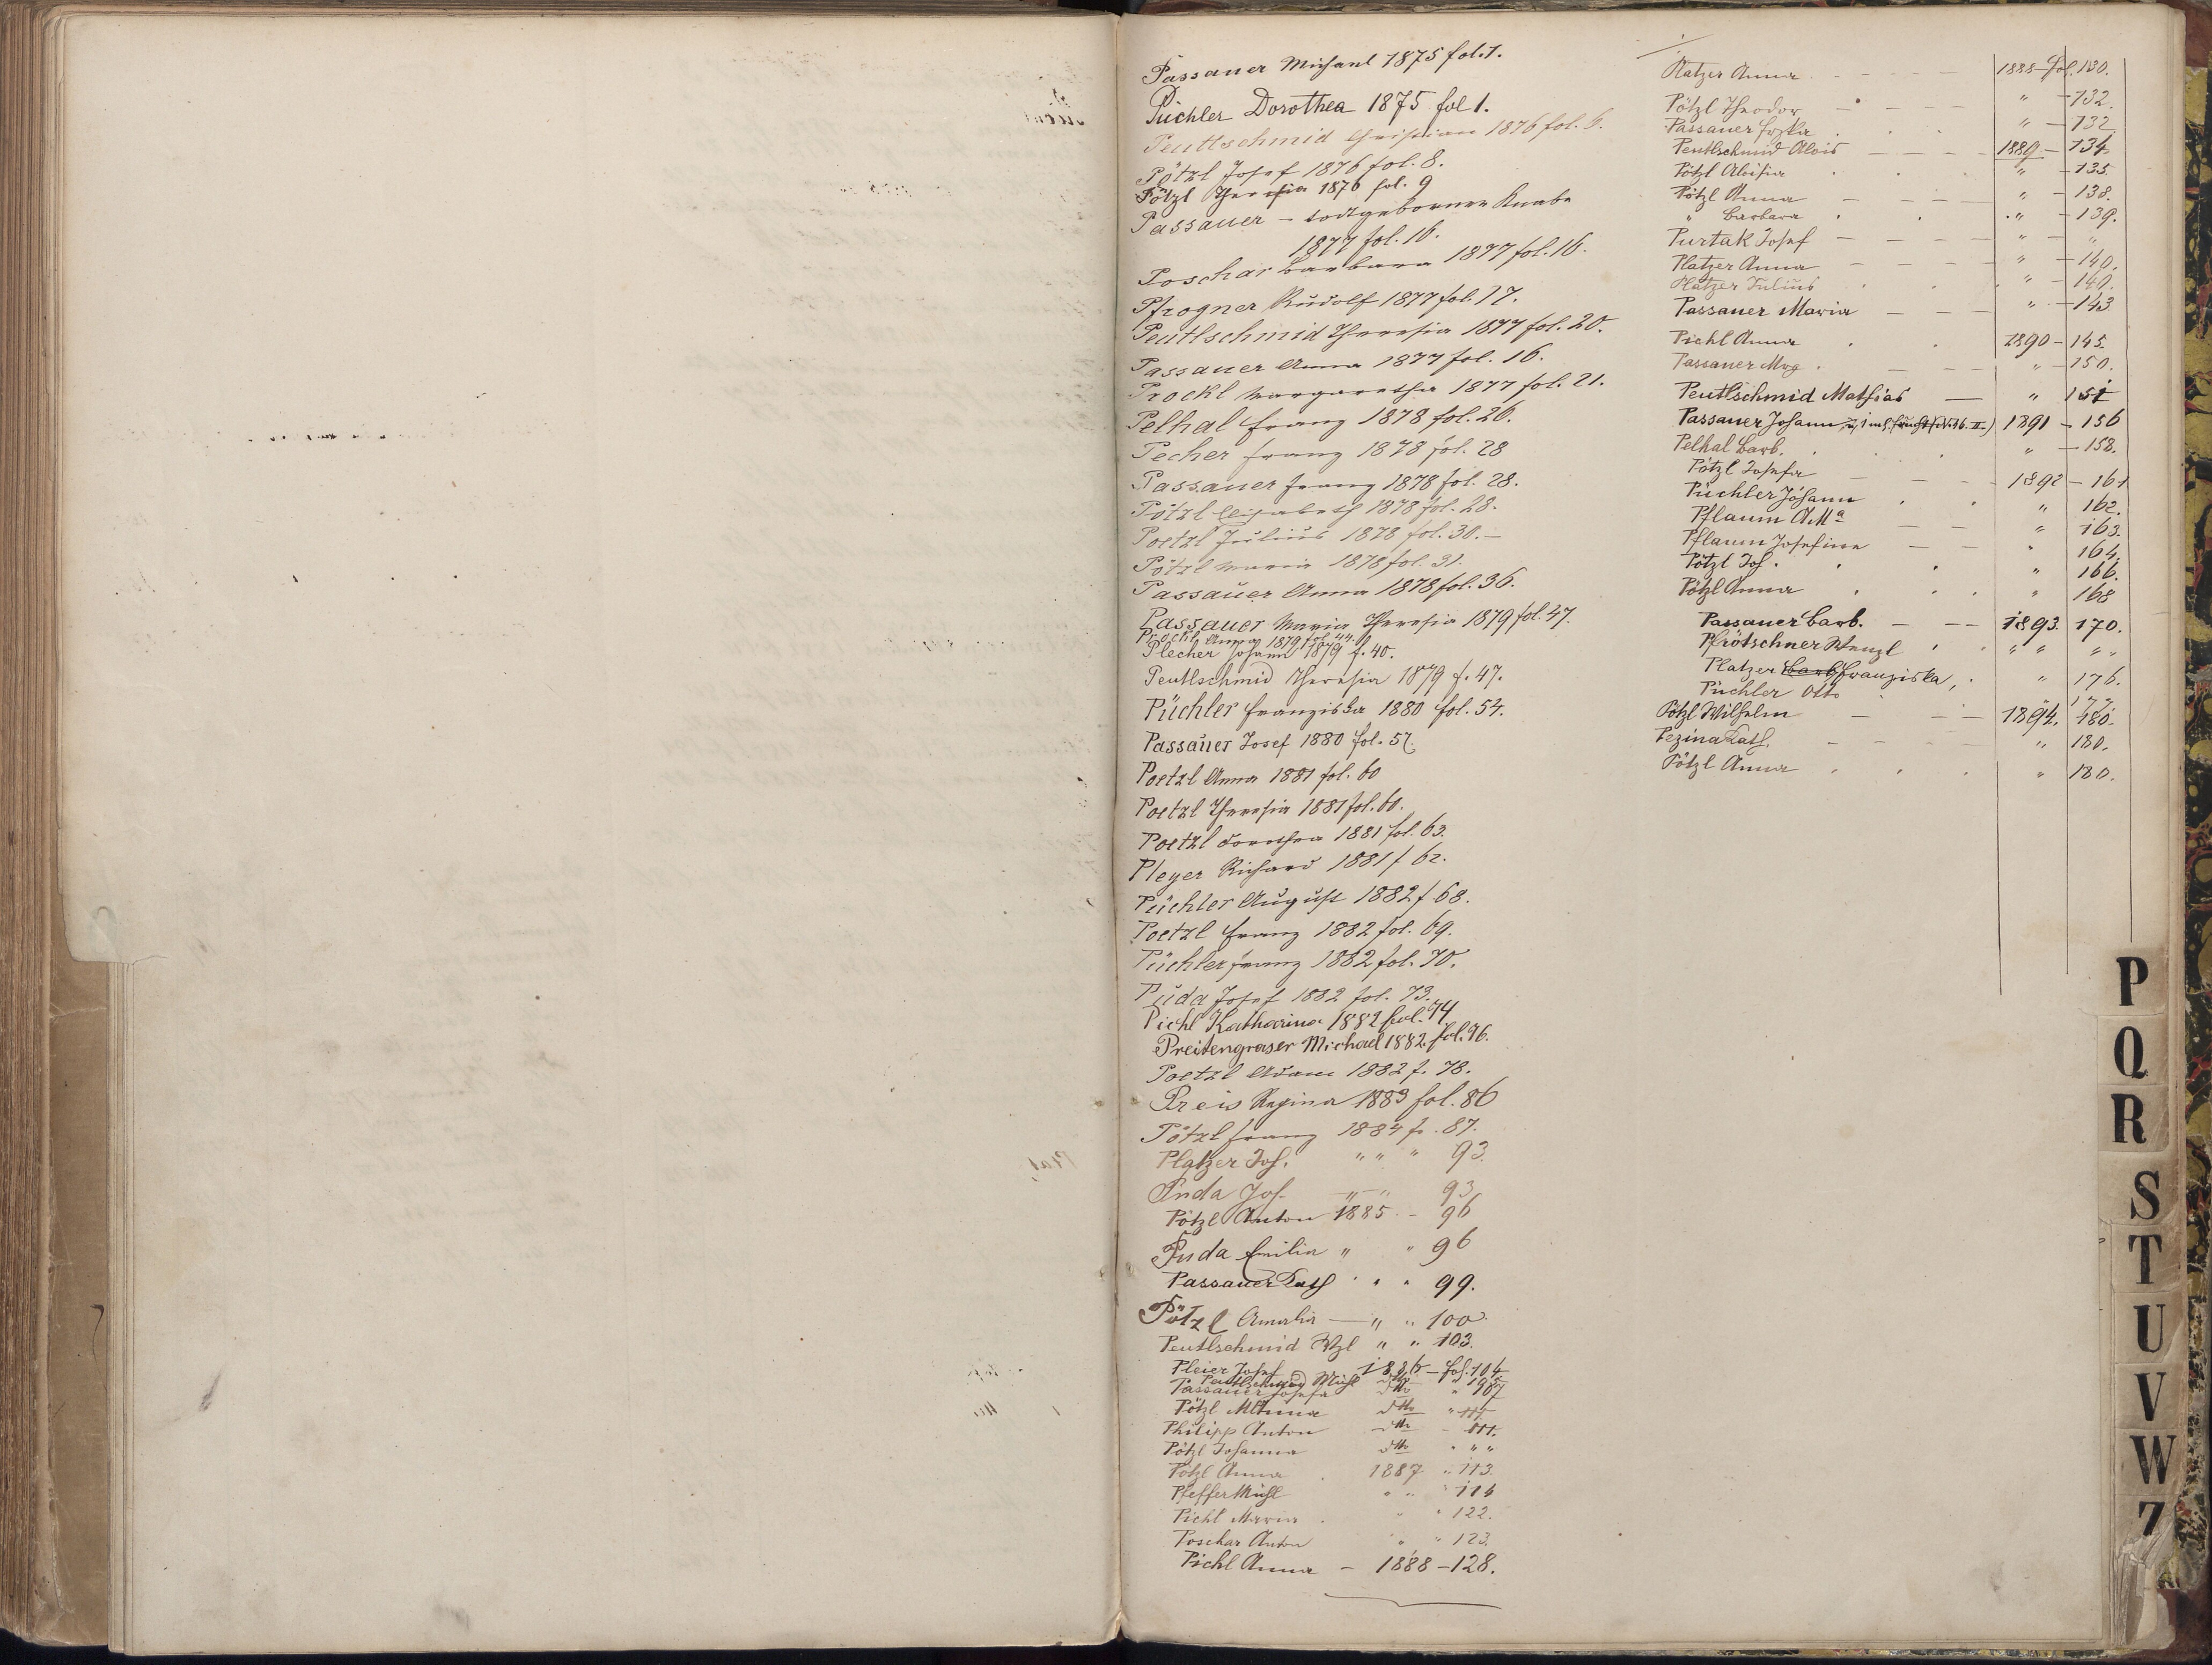 Passauer Michael 1875 fol. 1.
Püchler Dorothea 1875 fol 1.
Peutlschmid Christian 1876 fol. 6.
Pötzl Josef 1876 fol. 8.
Pötzl Theresia 1876 fol. 9
Passauer – todtgeborner Knabe
1877 fol. 16.
Poschar Barbara 1877 fol. 16.
Pfrogner Rudolf 1877 fol. 17.
Peutlschmid Theresia 1877 fol. 20.
Passauer Anna 1877 fol. 16.
Prockl Margaretha 1877 fol. 21.
Pelhal Franz 1878 fol. 26.
Pecher Franz 1878 fol. 28
Passauer Franz 1878 fol. 28.
Pötzl Elisabeth 1878 fol. 28.
Poetzl Julius 1878 fol. 30. –
Pötzl Maria 1878 fol. 31.
Passauer Anna 1878 fol. 36.
Passauer Maria Theresia 1879 fol. 47.
Prockl Anna 1879 fol. 44.
Plecher Johann 1879 f. 40.
Peutlschmid Theresia 1879 f. 47.
Püchler Franziska 1880 fol. 54.
Passauer Josef 1880 fol. 57.
Poetzl Anna 1881 fol. 60
Poetzl Theresia 1881 fol. 60.
Poetzl Dorothea 1881 fol. 63.
Pleyer Richard 1881 f 62.
Püchler August 1882 f 68.
Poetzl Franz 1882 fol. 69.
Püchler Franz 1882 fol. 70.
Puda Josef 1882 fol. 73.
Pichl Katharina 1882 fol. 74
Preitengraser Michael 1882. fol. 76.
Poetzl Adam 1882 f. 78.
Preis Regina 1883 fol. 86
Pötzl Franz 1884 f. 87.
Platzer Jos. " " " 93.
Puda Jos. " – " 93
Pötzl Anton 1885 – 96
Puda Emilia " " 96
Passauer Kath " " 99.
Pötzl Amalia — " " 100.
Peutlschmid Wzl " " 103.
Pleier Josef 1886 – fol. 104
Peutlschmid Michl dtto
Passauer Josefa dtto " 107
Pötzl M Anna dtto
Philipp Anton dtto – 111.
Pötzl Johanna dtto " " "
Pötzl Anna . 1887 " 113.
Pfeffer Michl " " " 114
Pichl Maria . " " 122.
Poschar Anton " " 123.
Pichl Anna – 1888 – 128.
Platzer Anna – – – – 1888 – fol. 130.
Pötzl Theodor – – – " – 132.
Passauer . . . " – 132
Peutlschmid Alois – – – – 1889 – 134
Pötzl Aloisia . . . " – 135
Pötzl Anna – – – – " – 138.
" Barbara . . . " – 139.
Purtak Josef – – – – " – "
Platzer Anna – – – – " – 140.
Platzer Julius . . . " – 140.
Passauer Maria – – – " – 143
Pichl Anna . . 1890 – 145.
Passauer Mrg . – – " – 150.
Peutlschmid Mathias — " 151
Passauer Johann 1891 – 156
Pelhal Barb. . . . " – 158.
Pötzl Josefa – – – 1892 – 161
Püchler Johann . . " 162.
Pflaum A Ma – – " 163.
Pflaum Josefine – – " 164.
Pötzl Jos. . . " 166.
Pötzl Anna . . . " 168
Passauer Barb. – – – 1893. 170.
Pfrötschner Wenzl . . " " " "
Platzer Barb Franziska, . " 176.
Püchler Otto 177.
Pötzl Wilhelm – – – 1894. 180.
Pezina Kath. – – – – " 180.
Pötzl Anna . . . " 180.
P
Q
R
S
T
U
V
W
Z